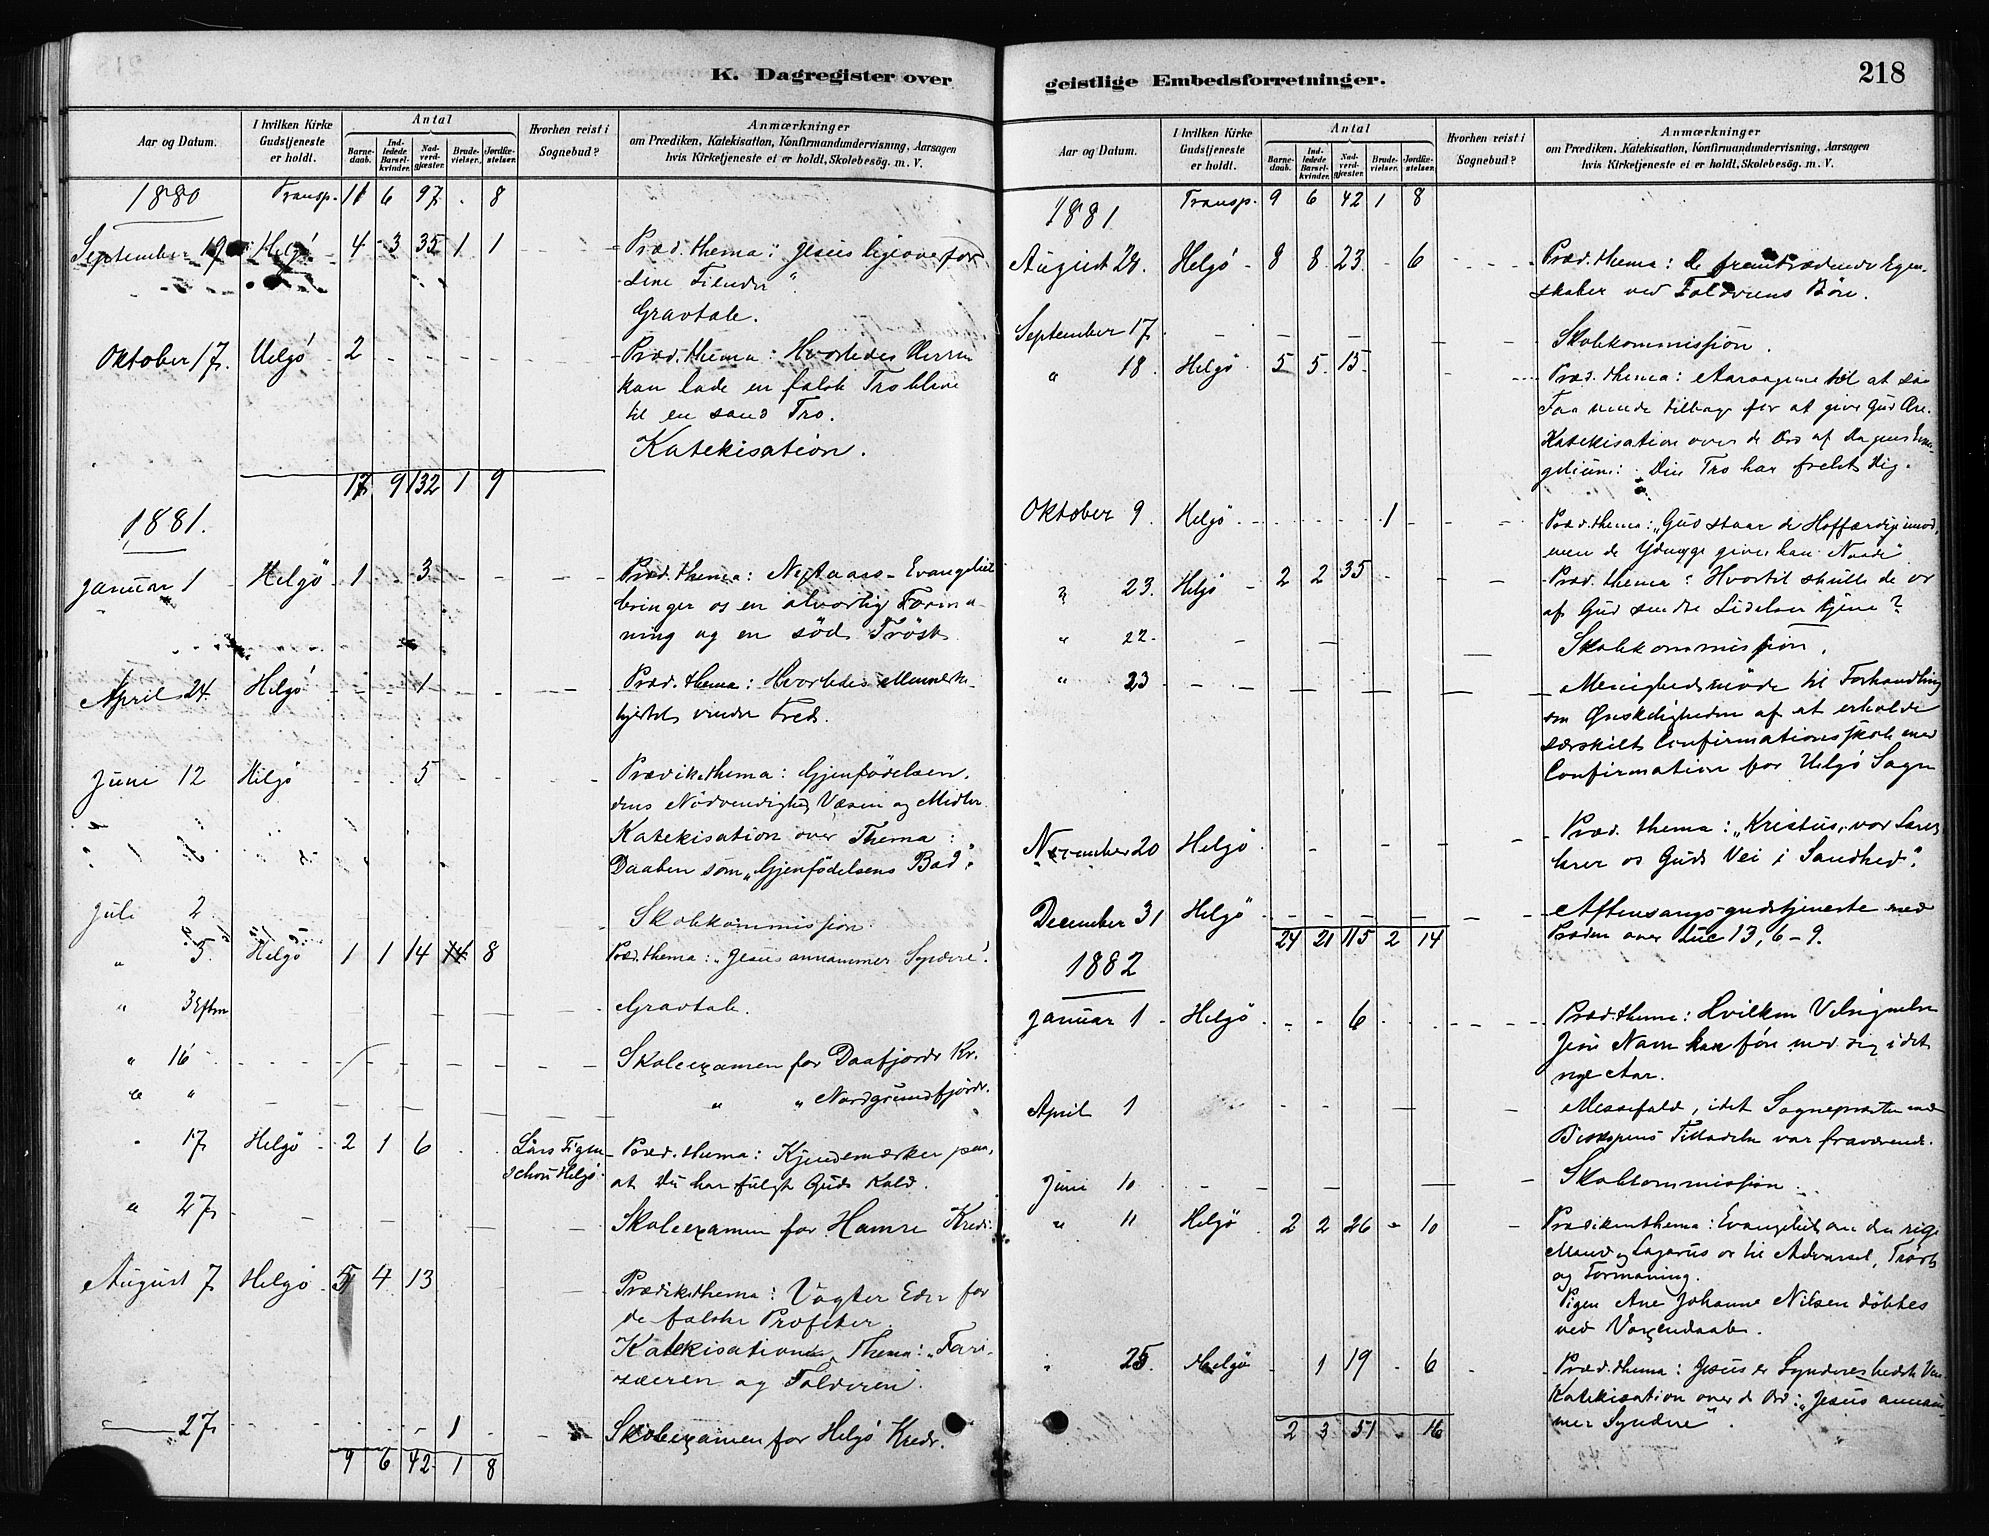 K. Dagregister over
Aar og Datum.
I hvilken Kirke Gudstjeneste er holdt.
Antal
Barne-daab.
Ind-ledede Barsel-kvinder.
Nad-verd-gjæster.
Brude-vielser.
Jordfæ-stelser.
Hvorhen reist i Sognebud?
Anmærkninger
om Prædiken, Katekisation, Konfirmandundervisning, Aarsagen
hvis Kirketjeneste ei er holdt, Skolebesög. m. V.
1880 Transp. 11 6 97 . 8
September 19 Helgö 4 3 35 1 1 Præd. thema: Jesus ligeoverfor
sine Fiender".
Gravtale.
Oktober 17. Helgö 2 Præd. thema: Hvorledes Herren
kan lade en falsk Tro blive
til en sand Tro.
Katekisation.
17 9 132 1 9
1881.
Januar 1 Helgö 1 3 Præd. thema: Nytaars-Evangeliet
bringer os en alvorlig Forma-
ning og en söd Tröst.
April 24. Helgö 1 Præd. thema: Hvorledes Menneske-
hjertet vinder Fred.
Juni 12 Helgö 5 Prædikethema: Gjenfödelsen,
dens Nödvendighed, Væsen og Midler.
Katekisation over Thema:
Daaben som "Gjenfödelsens Bad".
Juli 2 Skolekommission.
" 3. Helgö 1 1 14 8 Præd. thema: "Jesus annammer Syndere".
" 3 Eftm Gravtale.
" 16 Skoleexamen for Daafjords Kr.
" " " " Nordgrundfjords.
" 17 Helgö 2 1 6 Lars Figen-
schou Helgö. Præd. thema: Kjendemærker paa,
at Du har fulgt Guds Kald.
" 27 Skoleexamen for Hamre Kreds.
August 7 Helgö 5 4 13 Prædikethema: Vogter Eder for
de falske Profeter.
Katekisation Thema: "Fari-
sæeren og Tolderen.
27 1 Skoleexamen for Helgö Kreds.
9 6 42 1 8
geistlige Embedsforretninger.
218
Aar og Datum.
I hvilken Kirke Gudstjeneste er holdt.
Antal
Barne-daab.
Ind-ledede Barsel-kvinder.
Nad-verd-gjæster.
Brude-vielser.
Jordfæ-stelser.
Hvorhen reist i Sognebud?
Anmærkninger
om Prædiken, Katekisation, Konfirmandundervisning, Aarsagen
hvis Kirketjeneste ei er holdt, Skolebesög. m. V.
1881 Transp. 9 6 42 1 8
August 28. Helgö 8 8 23 6 Præd. thema: De fremtrædende Egen-
skaber ved Tolderens Bön.
September 17 Skolekommission.
" 18. Helgö 5 5 15 Præd. thema: Aarsagerne til at saa
Faa vende tilbage for at give Gud Ære.
Katekisation over de Ord af Dagens Evan-
gelium: Din Tro har frelst dig.
Oktober 9. Helgö 1 Præd. thema: "Gud staar de Hoffærdige imod,
men de Ydmyge giver han Naade"
" 23. Helgö 2 2 35 Præd. thema: Hvortil skulle de os
af Gud sendte Lidelser tjene?
" 22. Skolekommission.
" 23 Menighedsmöde til Forhandling
om Önskeligheden af at erholde
særskilt Confirmationsskole med
Confirmation for Helgö Sogn
November 20 Helgö Præd. thema: "Kristus, vor Lærer
lærer os Guds Vei i Sandhed".
December 31 Helgö Aftensangsgudstjeneste med
Præken over Luc 13, 6-9.
24 21 115 2 14
1882
Januar 1 Helgö 6 Præd. thema: Hvilken Velsignelse
Jesu Navn kan före med sig i det
nye Aar.
April 1 Messefald, idet Sognepresten med
Biskopens Tilladelse var fraværende.
Juni 10 Skolecommission.
" 11 Helgö 2 2 26 10 Prædikenthema: Evangeliet om den rige
Mand og Lazarus er til Advarsel, Tröst
og Formaning.
Pigen Ane Johanne Nilsen döbtes
ved Voxendaab.
" 25. Helgö 1 19 6 Præd. thema: Jesus er Synderes bedste Ven
Katekisation over de Ord: "Jesus annam-
mer Syndere".
2 3 51 . 16